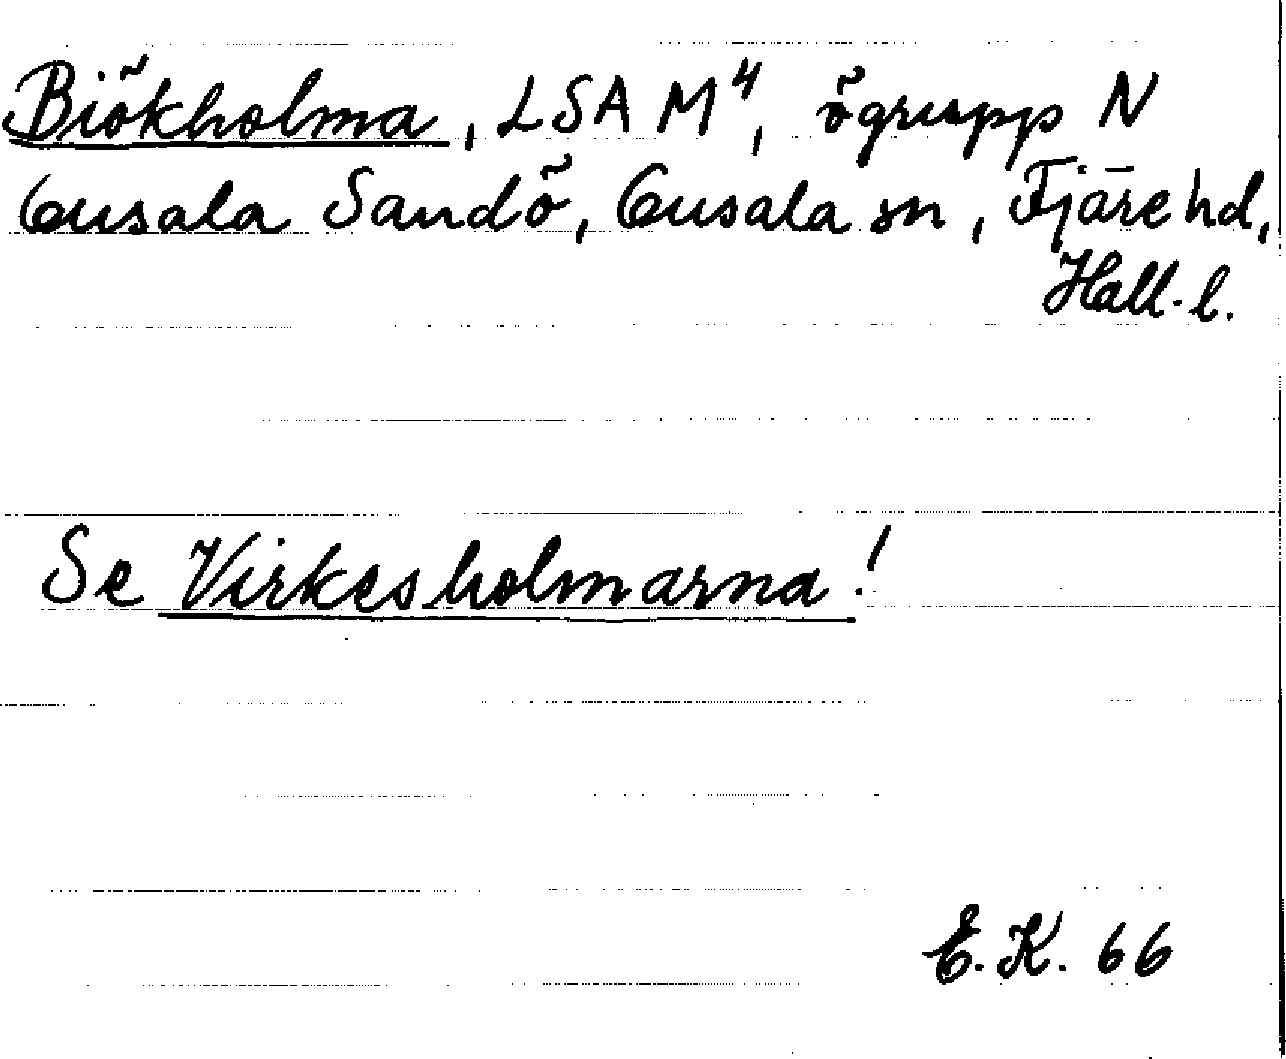 Biökholma, LSA M⁴, ögrupp N
Onsala Sandö, Onsala sn, Fjäre hd,
Hall. l.
Se Virkesholmarna!
E.K. 66